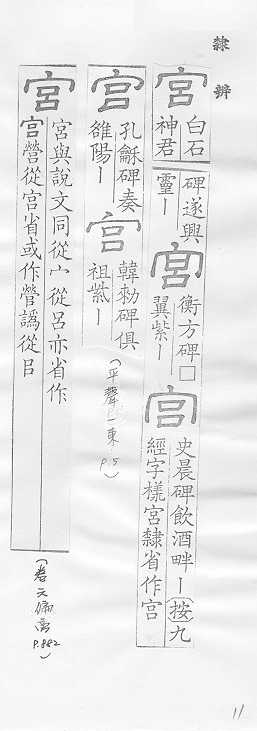 隸辨
宮
白石
神君
碑遂興
靈丨
宮
衡方碑□
翼紫丨
宮
史晨碑飲酒畔丨按九
經字樣宮隸省作宫
宮
孔龢碑奏
雒陽丨
宫
韓勑碑俱
祖紫丨
(平聲一東 P.5)
宮
宮與說文同從宀從呂亦省作
宫營從宫省或作營譌從㠯
(卷六偏旁 P.882)
11